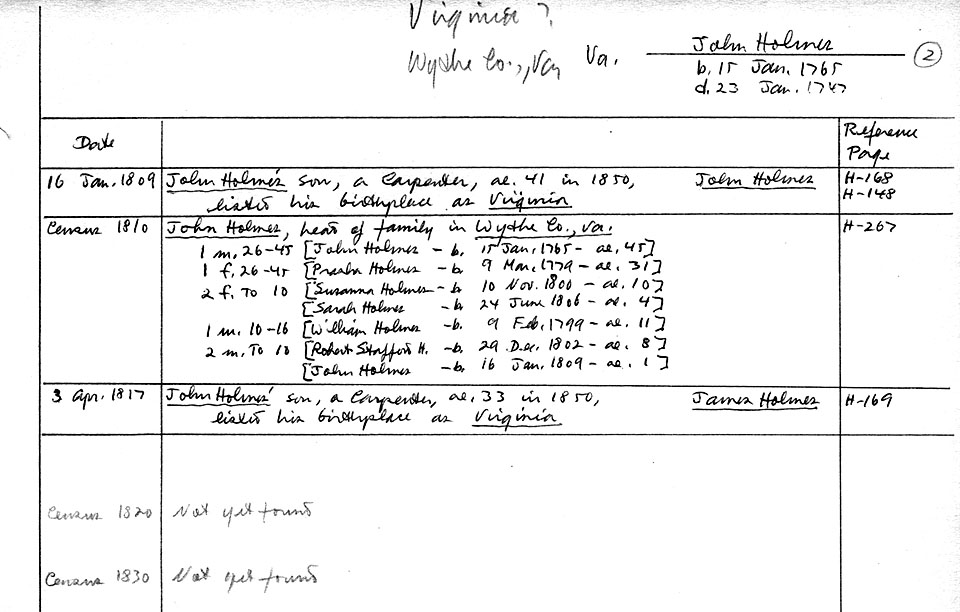 Virginia ?
Wythe Co., Va. Va. John Holmes 2
b. 15 Jan. 1765
d. 23 Jan. 1747
Date Reference Page
16 Jan. 1809 John Holmes' son, a Carpenter, ae. 41 in 1850, John Holmes H-168
listed his birthplace as Virginia H-148
Census 1810 John Holmes, head of family in Wythe Co., Va. H-267
1 m. 26-45 [John Holmes - b. 15 Jan. 1765 - ae. 45]
1 f. 26-45 [ Holmes - b. 9 Mar. 1779 - ae. 31]
2 f. To 10 [Susanna Holmes - b. 10 Nov. 1800 - ae. 10]
[Sarah Holmes - b. 24 June 1806 - ae. 4]
1 m. 10-16 [William Holmes - b. 9 Feb. 1799 - ae. 11]
2 m. To 10 [Robert Stafford H. - b. 29 Dec. 1802 - ae. 8]
[John Holmes - b. 16 Jan. 1809 - ae. 1]
3 Apr. 1817 John Holmes' son, a Carpenter, ae. 33 in 1850, James Holmes H-169
listed his birthplace as Virginia
Census 1820 Not yet found
Census 1830 Not yet found